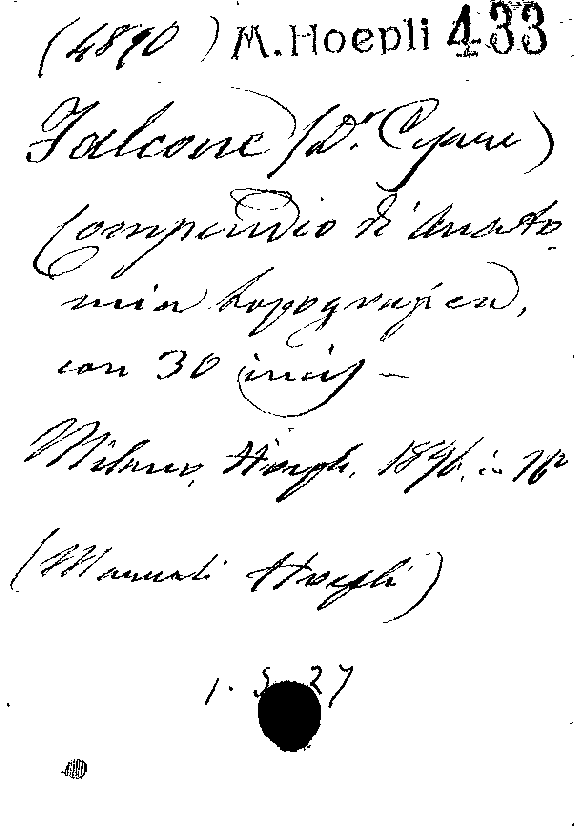 (4890) M. Hoepli 433
Falcone (Dr. Cesare)
Compendio di Anato-
mia topografica,
con 30 incis –
Milano, Hoepli, 1896. in 16º
(Manuali Hoepli)
1. 5 27